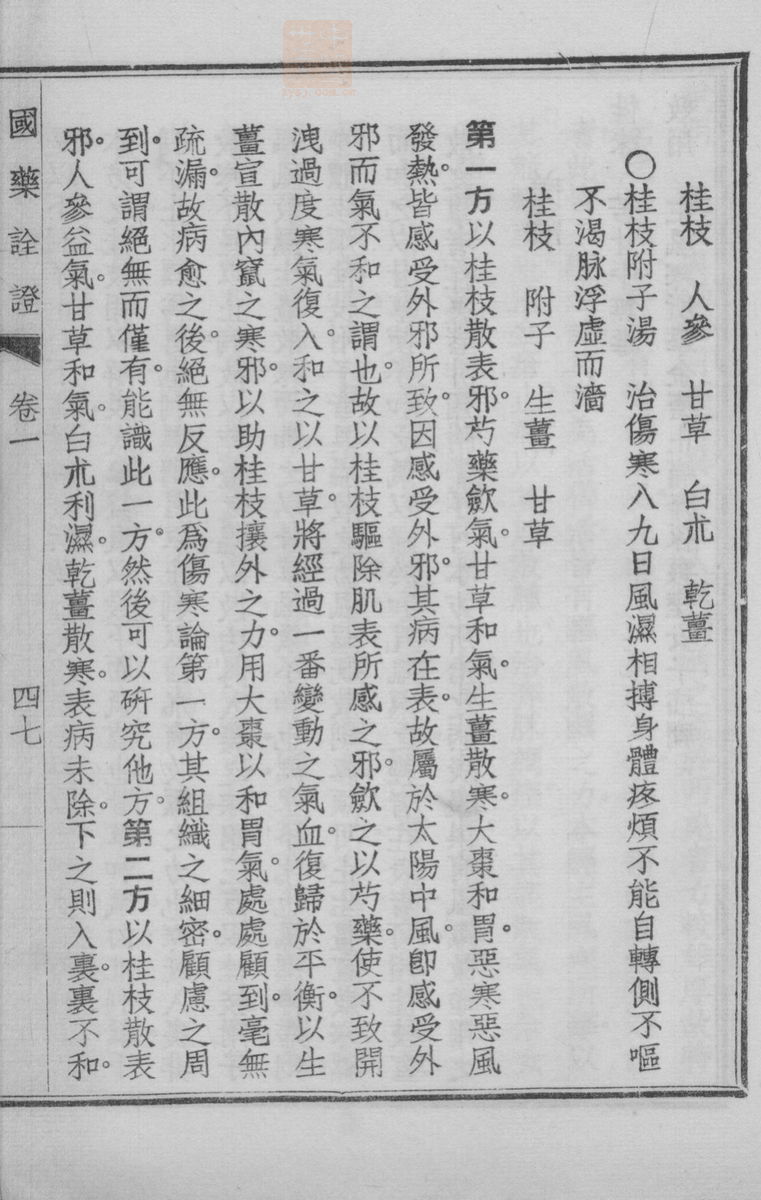 桂枝　人參　甘草　白朮　乾薑
○桂枝附子湯　治傷寒八九日風濕相搏身體疼煩不能自轉側不嘔
不渴脉浮虛而濇
桂枝　附子　生薑　甘草
第一方以桂枝散表邪。芍藥歛氣。甘草和氣。生薑散寒。大棗和胃。惡寒惡風
發熱。皆感受外邪所致。因感受外邪。其病在表。故屬於太陽中風。卽感受外
邪而氣不和之謂也。故以桂枝驅除肌表所感之邪。歛之以芍藥。使不致開
洩過度寒氣復入。和之以甘草。將經過一番變動之氣血。復歸於平衡。以生
薑宣散內竄之寒邪。以助桂枝攘外之力。用大棗以和胃氣。處處顧到。毫無
疏漏。故病愈之後。絕無反應。此爲傷寒論第一方。其組織之細密。顧慮之周
到。可謂絕無而僅有。能識此一方。然後可以硏究他方。第二方以桂枝散表
邪。人參益氣。甘草和氣。白朮利濕。乾薑散寒。表病未除。下之則入裏。裏不和。
國藥詮證　卷一　四七